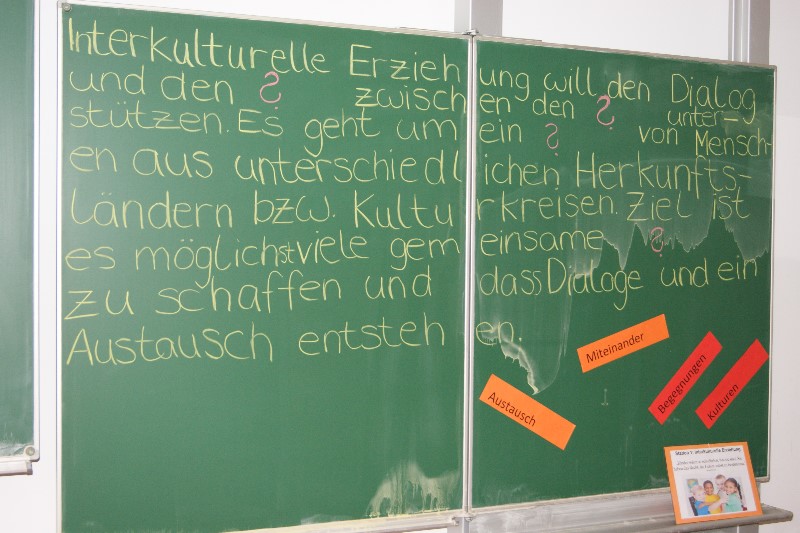 Interkulturelle Erziehung will den Dialog
und den ? zwischen den ? unter-
stützen. Es geht um ein ? von Mensch-
en aus unterschiedlichen Herkunfts-
ländern bzw. Kulturkreisen. Ziel ist
es möglichst viele gemeinsame ?
zu schaffen und dass Dialoge und ein
Austausch entstehen.
Miteinander
Austausch
Begegnungen
Kulturen